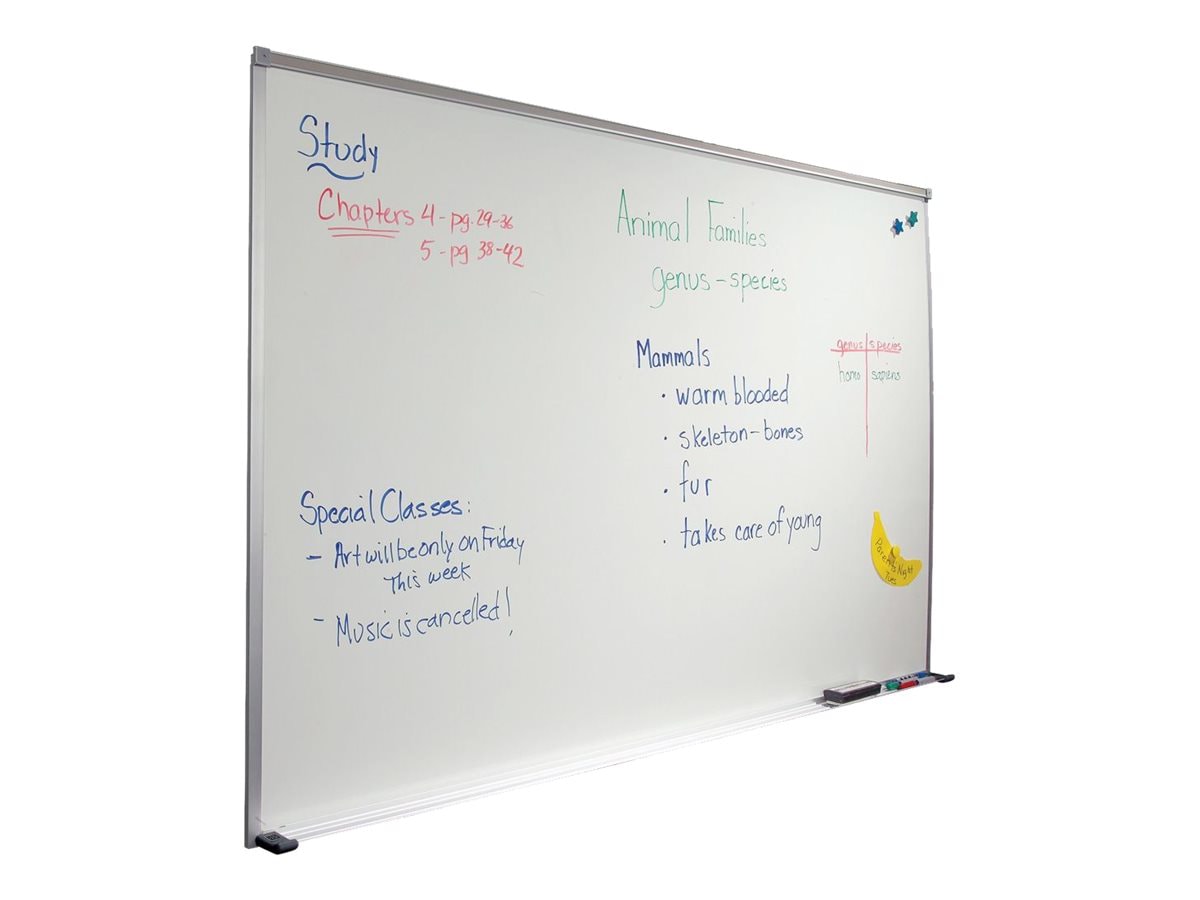 Study
Chapters 4 - pg. 29-36
5 - pg 38-42
Animal Families
genus - species
Mammals
· warm blooded
· skeleton - bones
· fur
· takes care of young
genus | species
homo | sapiens
Special Classes:
- Art will be only on Friday
This week
- Music is cancelled!
Night
Tues